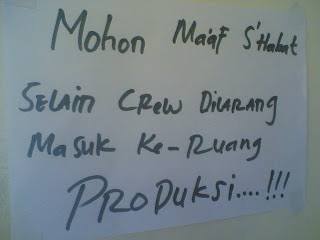 Mohon Ma'af S'Habat
SELAIN CREW DILARANG
MASUK KE-RUANG
PRODUKSI....!!!